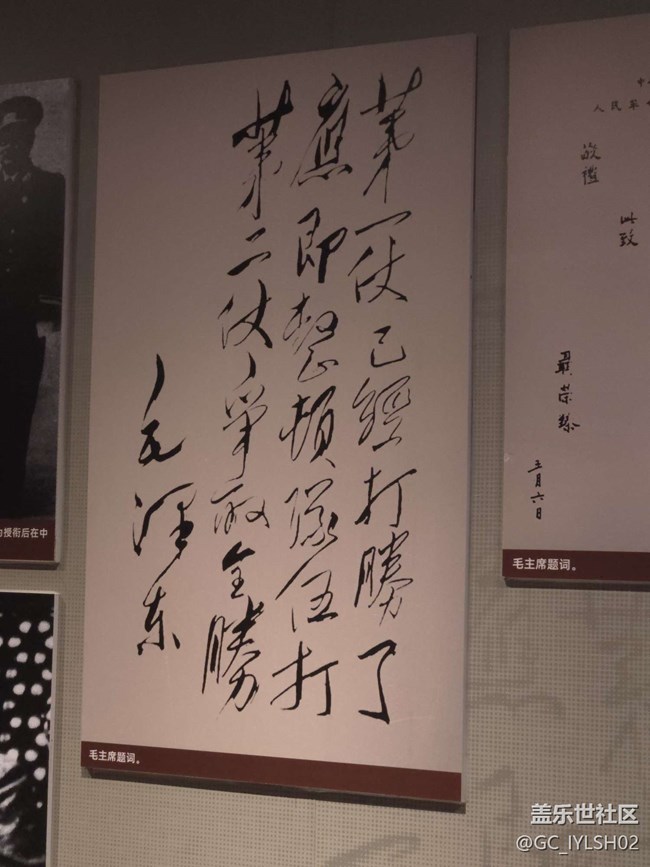 第一仗已經打勝了
應即整頓隊伍打
第二仗爭取全勝
毛泽东
毛主席题词。
人民革
此致
敬禮
聂荣臻
三月六日
毛主席题词。
授衔后在中
盖乐世社区
@GC_IYLSH02